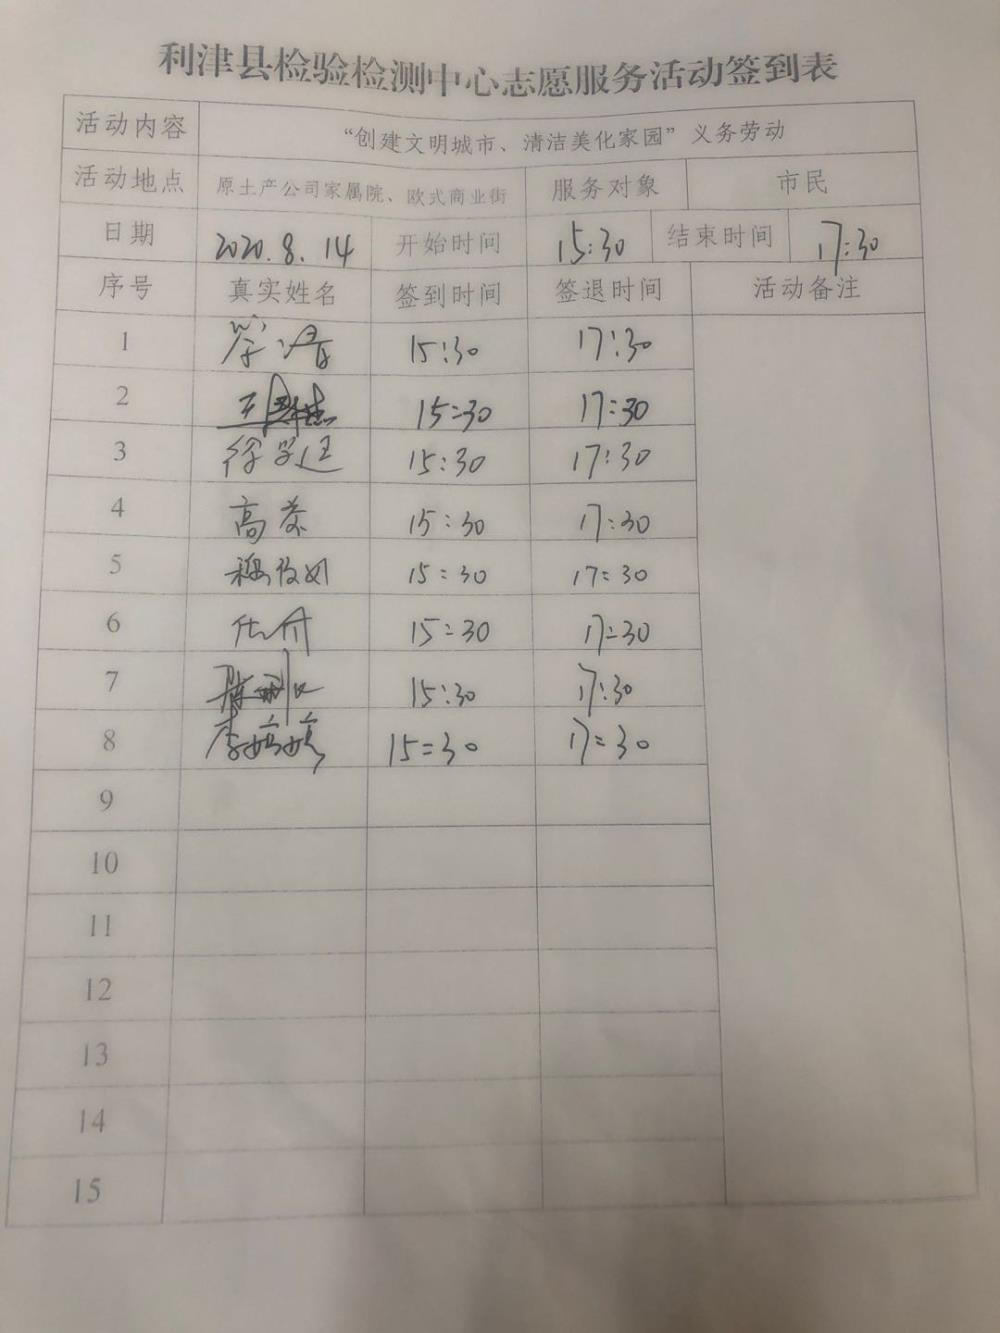 利津县检验检测中心志愿服务活动签到表
活动内容 “创建文明城市、清洁美化家园”义务劳动
活动地点 原土产公司家属院、欧式商业街 服务对象 市民
日期 2020.8.14 开始时间 15:30 结束时间 17:30
序号 真实姓名 签到时间 签退时间 活动备注
1 15:30 17:30
2 15:30 17:30
3 15:30 17:30
4 高 15:30 17:30
5 15:30 17:30
6 15:30 17:30
7 15:30 17:30
8 李婷婷 15:30 17:30
9
10
11
12
13
14
15